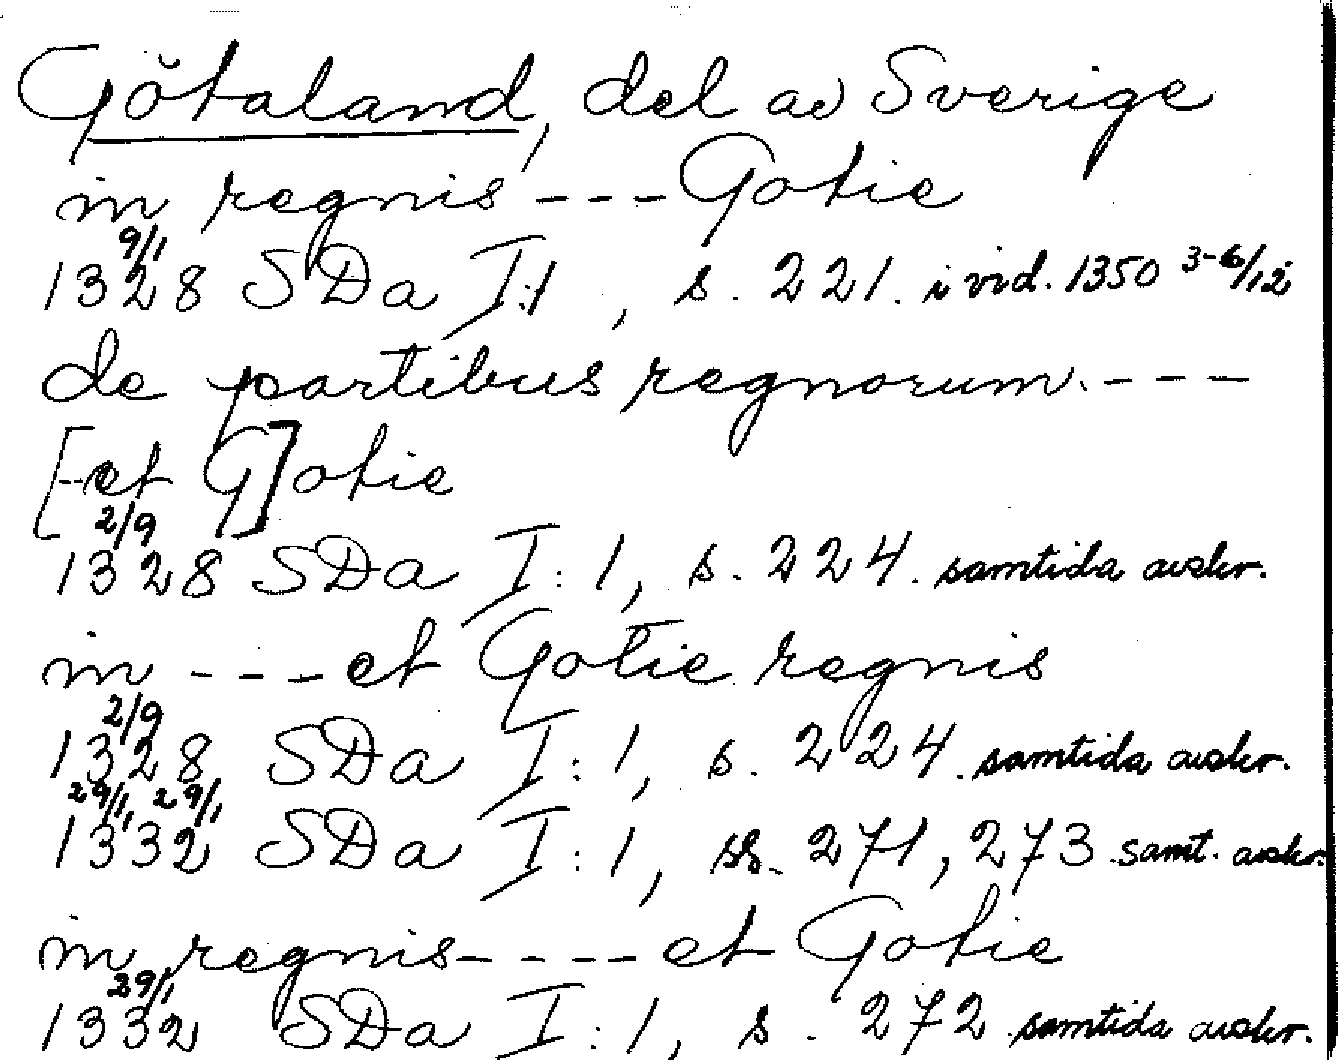 Götaland, del av Sverige
in regnis --- Gotie
9/1
1328 SDa I:1, s. 221. i vid. 1350 3-6/12
de partibus regnorum ---
[-et G]otie
2/9
1328 SDa I:1, s. 224. samtida avskr.
in --- et Gotie regnis
2/9
1328 SDa I:1, s. 224. samtida avskr.
29/1, 29/1
1332 SDa I:1, ss. 271, 273 samt. avskr.
in regnis ---- et Gotie
29/1
1332 SDa I:1, s. 272 samtida avskr.